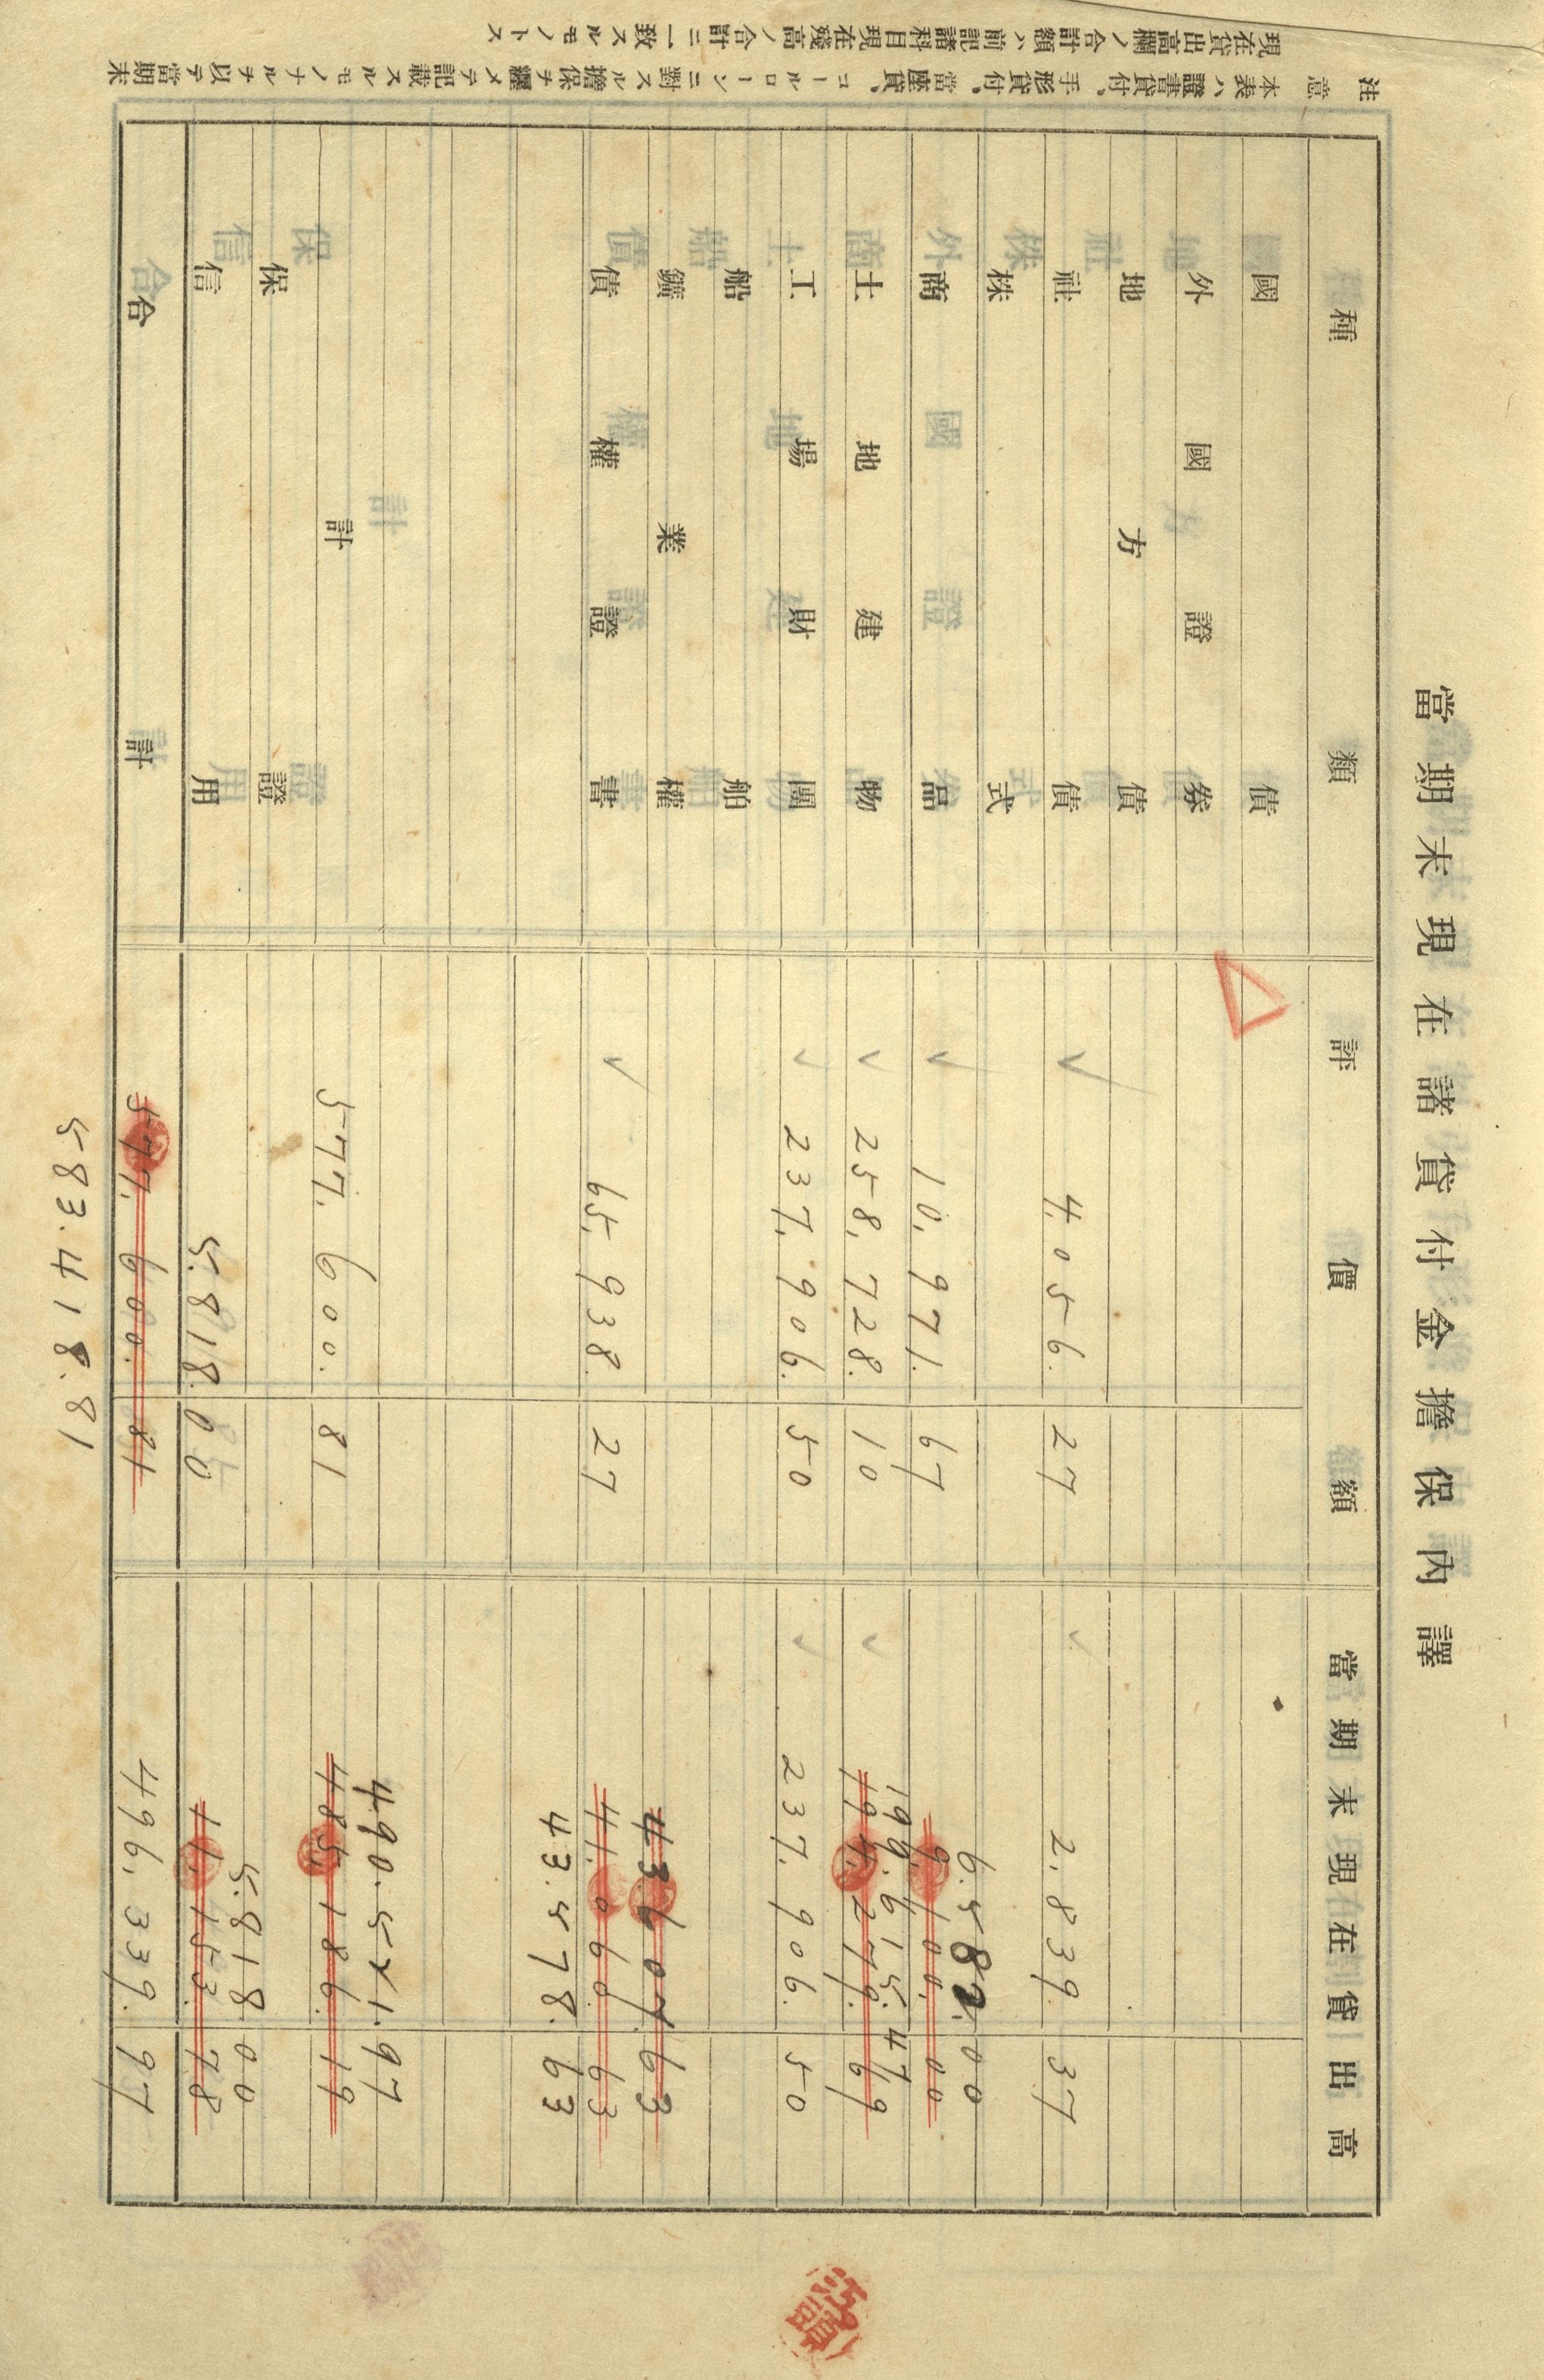 當期末現在諸貸付金擔保內譯
種類 評價額 當期末現在貸出高
國債
外國證券
地方債
社債 4.056.27 2.839.37
株式
6.582.00
商品 10.971.67 9.100.00
199.615.47
土地建物 258.728.10 194.279.69
工場財團 237.906.50 237.906.50
船舶
鑛業權
43.607.63
債權證書 65.938.27 41.060.63
43.578.63
490.521.97
計 577.600.81 485.186.19
保證
5.818.00
信用 5.818.00 11.153.78
合計 577.600.81 496.339.97
583.418.81
注意 本表ハ證書貸付、手形貸付、當座貸、コールローンニ對スル擔保ヲ纒メテ記載スルモノナルヲ以テ當期末
現在貸出高欄ノ合計額ハ前記諸科目現在殘高ノ合計ニ一致スルモノトス